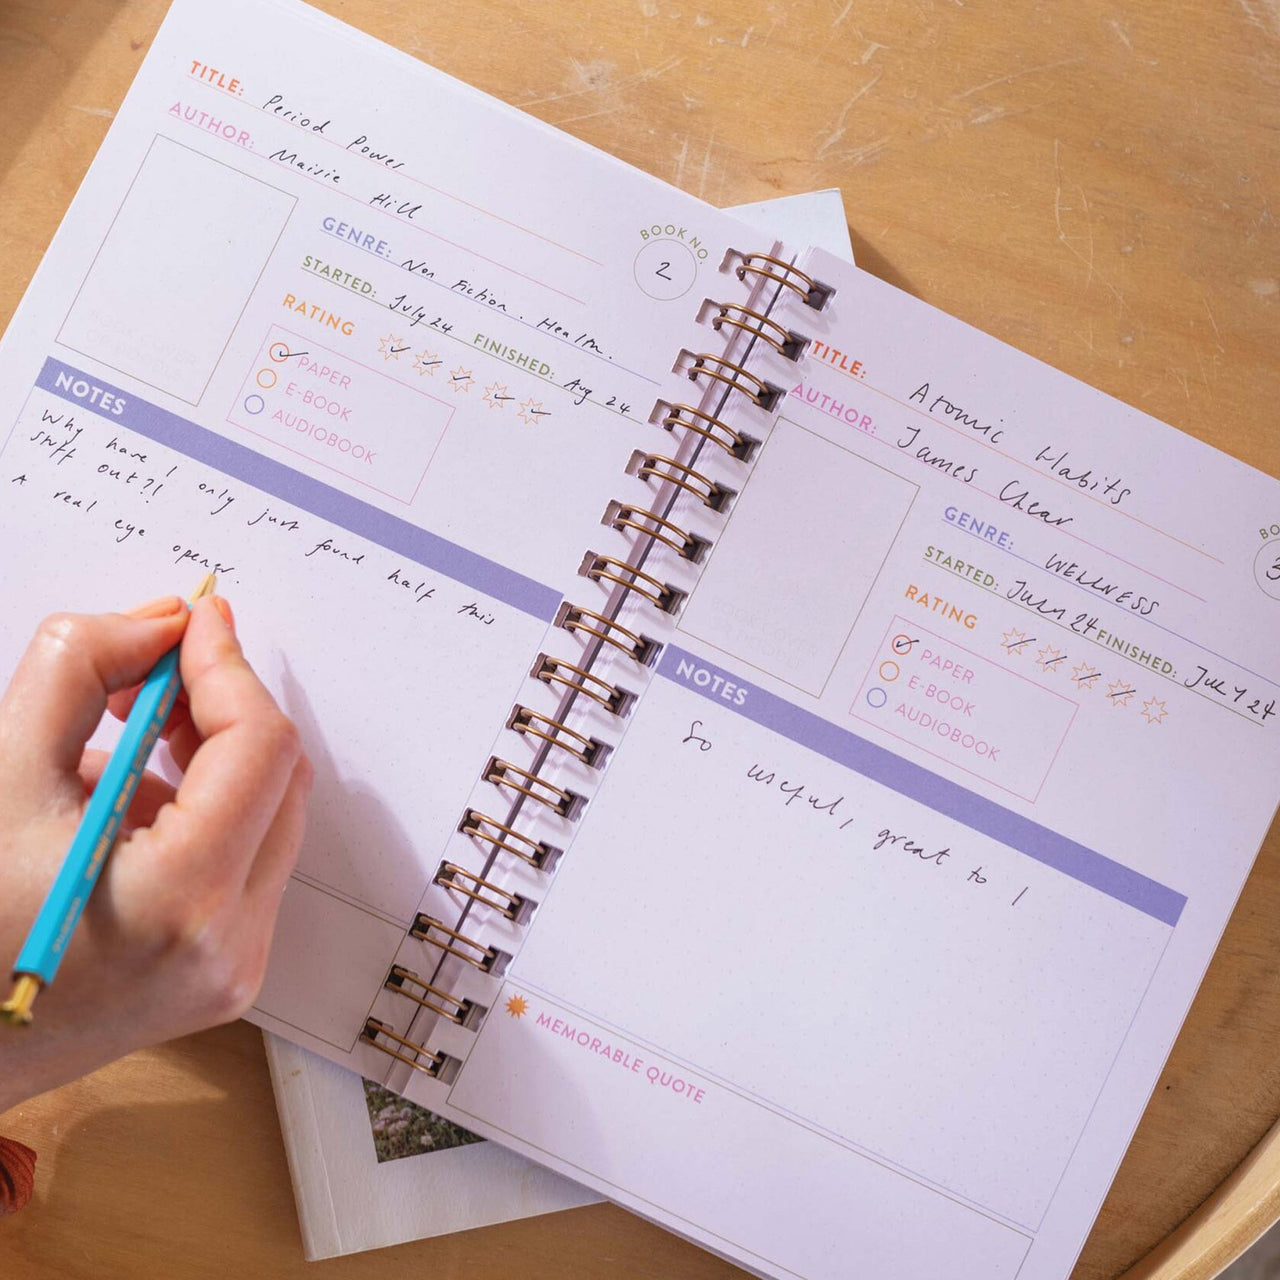 TITLE: Period Power
AUTHOR: Maisie Hill
BOOK NO.
2
GENRE: Non Fiction. Health.
STARTED: July 24 FINISHED: Aug 24
RATING
PAPER
E-BOOK
AUDIOBOOK
NOTES
Why have I only just found half this
stuff out?!
A real eye opener.
TITLE: Atomic Habits
AUTHOR: James Clear
3
GENRE: WELLNESS
STARTED: July 24 FINISHED: July 24
RATING
PAPER
E-BOOK
AUDIOBOOK
NOTES
So useful, great to
MEMORABLE QUOTE